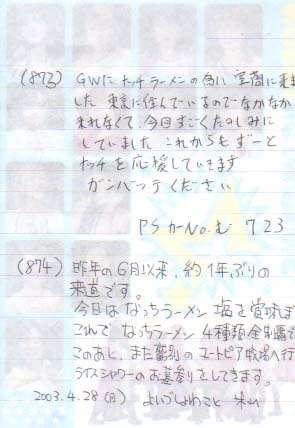 (873) GWに ナッチラーメンの為に 室蘭に来ま
した 東京に住んでいるのでなかなか
来れなくて、今回すごくたのしみに
していました これからもずーと
ナッチを応援していきます
ガンバッテください
PS カーNo.む 723
(874) 昨年の6月以来、約1年ぶりの
来道です。
今日はなっちラーメン 塩を賞味し
これで なっちラーメン 4種類全制覇
このあと、また 登別の ユートピア牧場へ行
ライスシャワーのお墓参りをしてきます。
2003.4.28(月)